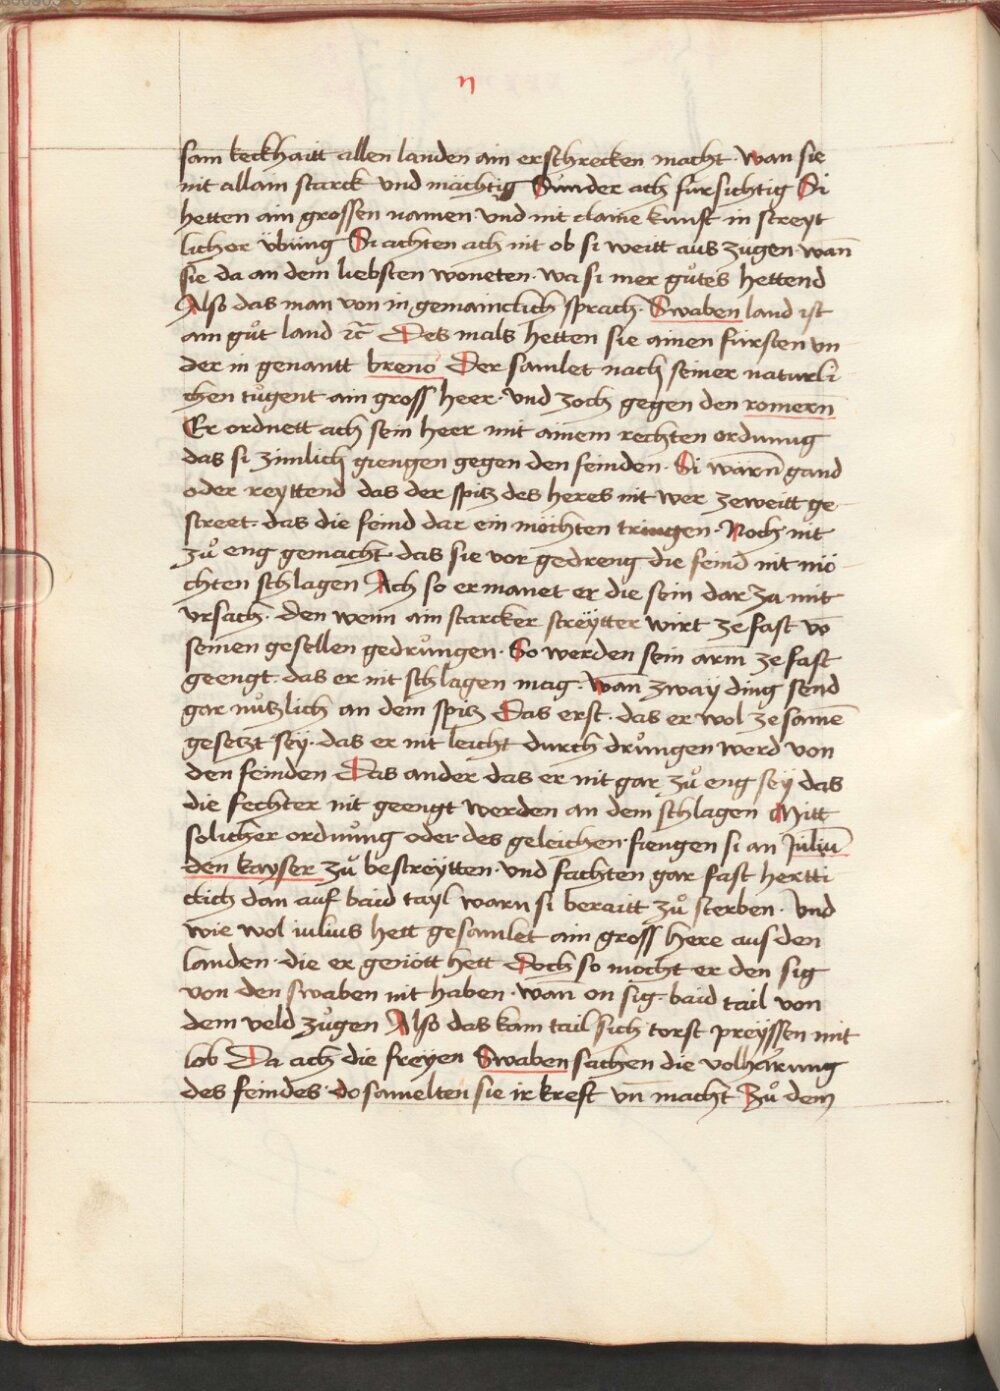 n
sam keckhaitt allen landen ain erschrecken macht · wan sie
nit allain starck vnd mächtig Sunder ach fürsichtig Si
hetten ain grossen namen · vnd nit claine kunst in streyt
licher übung Si achten ach nit ob si weitt aus zugen · wan̄
sie da an dem liebsten woneten · wa si mer gůtes hettend
Also das man von in gemainclich sprach · Swaben land ist
ain gůt land ⁊c̄ Des mals hetten sie ainen fürsten vn
der in genantt breno Der samlet nach seiner naturli
chen tůgent ain gross heer · vnd zoch gegen den romern̄
Er ordnett ach sein heer mit ainem rechten ordnung
das si zimlich giengen gegen den feinden · Si warn̄ gand
oder reyttend das der spitz des heres nit wer zeweitt ge
street · das die feind dar ein möchten tringen · Noch nit
zů eng gemacht · das sie vor gedreng die feind nit mö
chten schlagen Ach so ermanet er die sein dar zu mit
vrsach · den wenn ain starcker streÿtter wirt ze fast vō
seinen gesellen gedrůngen · So werden sein arm̄ ze fast
geengt · das er nit schlagen mag · wan̄ zwaÿ ding send
gar nůtzlich an dem spitz Das erst · das er wol ze samē
gesetzt seÿ · das er nit leicht durch drůngen werd von
den feinden Das ander das er nit gar zů eng seÿ das
die fechter nit geengt werden an dem schlagen Mitt
solicher ordnůng oder des geleichen · fiengen si an Juliū
den kayser zů bestreÿtten · vnd fachten gar fast hertti
clich dan auf baid tayl warn si beraitt zů sterben · Vnd
wie wol iulius hett gesamlet ain gross here aus den
landen · die er genött hett Doch so mocht er den sig
von den swaben nit haben · wan̄ on sig · baid tail von
dem veld zůgen Also das kam tail sich torst preÿssen mit
lob Da ach die freÿen Swaben sachen die volharrung
des feindes · do samelten sie ir kreft vn̄ macht Zů dem